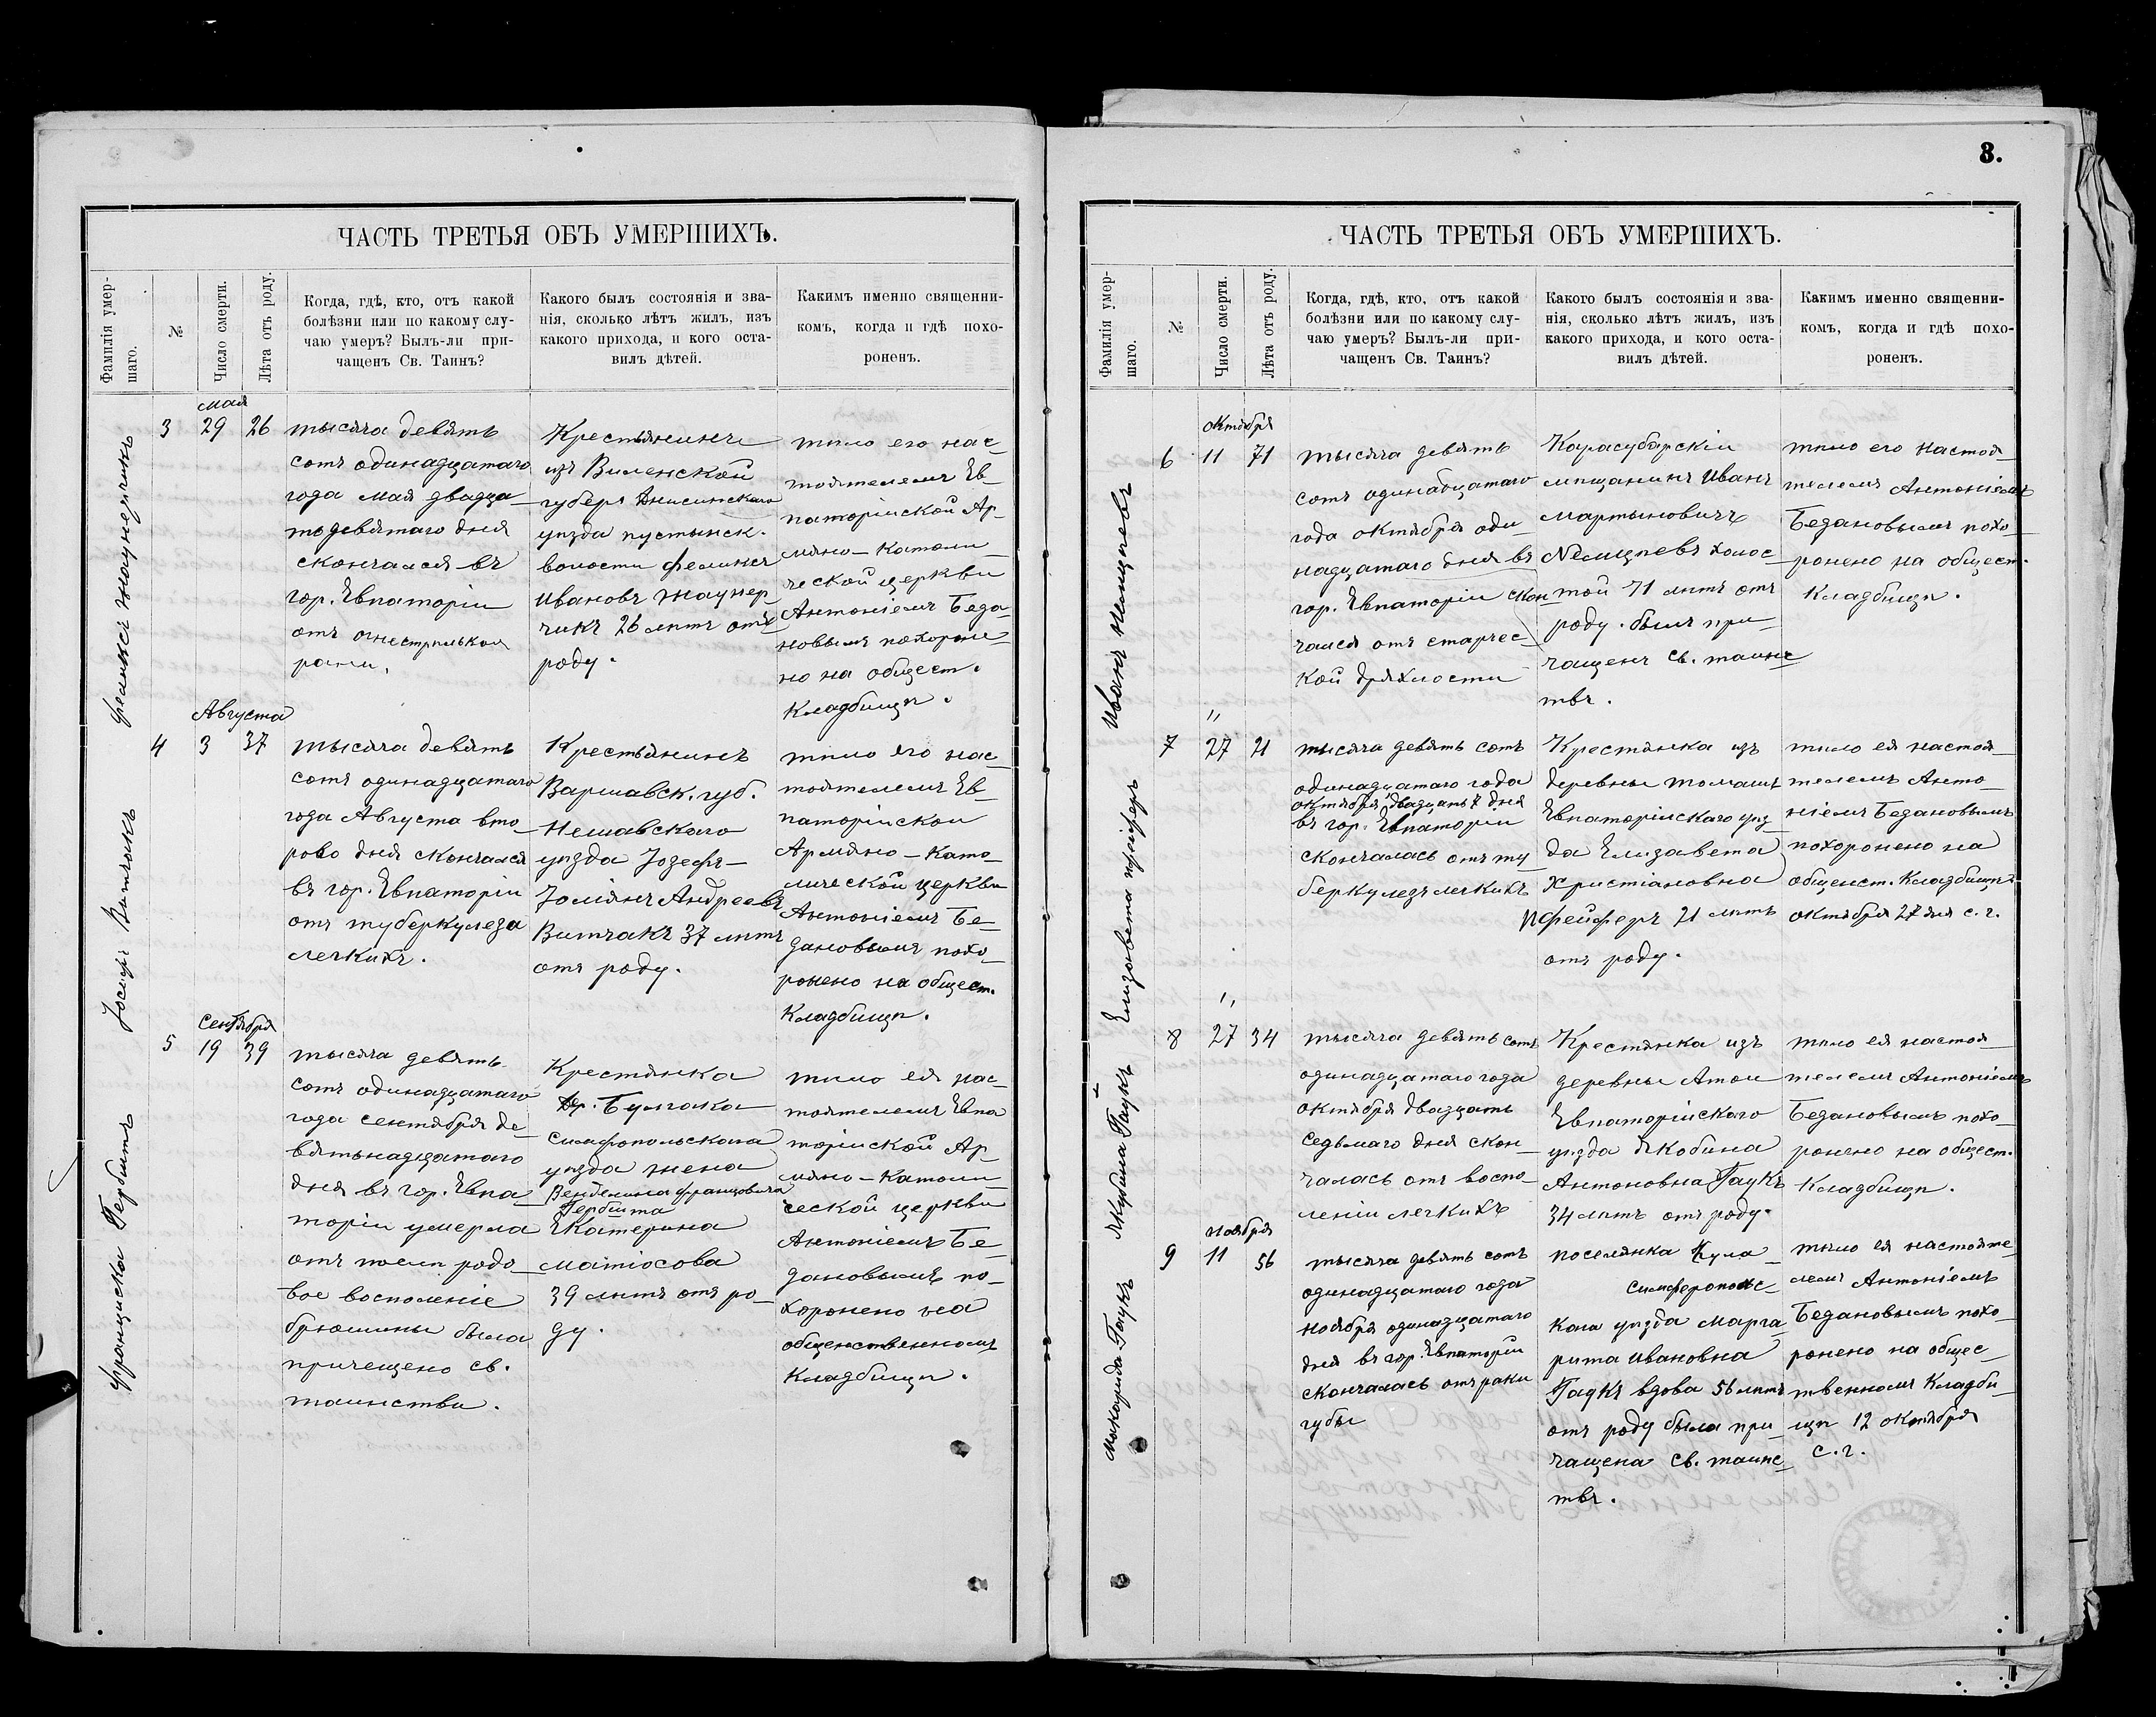 ЧАСТЬ ТРЕТЬЯ ОБЪ УМЕРШИХЪ.
Фамилія умер-
шаго.
№
Число смерти.
Лѣта отъ роду.
Когда, гдѣ, кто, отъ какой
болѣзни или по какому слу-
чаю умеръ? Былъ-ли при-
чащенъ Св. Таинъ?
Какого былъ состоянія и зва-
нія, сколько лѣтъ жилъ, изъ
какого прихода, и кого оста-
вилъ дѣтей.
Какимъ именно священни-
комъ, когда и гдѣ похо-
роненъ.
Феликсъ Жаунерчикъ
мая
3 29 26
тысяча девять
сотъ одинадцатаго
года мая двадца
тодевятаго дня
скончался въ
гор. Евпаторіи
отъ огнестрѣльной
раны.
Крестьянинъ
изъ Виленской
губерн
уѣзда пустынск.
волости Феликсъ
Ивановъ Жаунер
чикъ 26 лѣтъ отъ
роду.
тѣло его нас
тоятелемъ Ев
паторійской Ар
мяно-Католи
ческой церкви
Антоніемъ Беда
новымъ похороне
но на общест.
Кладбищѣ.
Іосифъ Витчакъ
Августа
4 3 37
тысяча девять
сотъ одинадцатаго
года Августа вто
рово дня скончался
въ гор. Евпаторіи
отъ туберкулеза
легкихъ.
Крестьянинъ
Варшавск. губ.
Нешавскаго
уѣзда Іозефъ-
Іоліянъ Андреевъ
Витчакъ 37 лѣтъ
отъ роду.
тѣло его нас
тоятелемъ Ев
паторійской
Армяно-Като
лической церкви
Антоніемъ Бе
дановымъ похо
ронено на общест.
Кладбищѣ.
Францыска Гербитъ
Сентября
5 19 39
тысяча девять
сотъ одинадцатаго
года сентября де
вятьнадцатаго
дня въ гор. Евпа
торіи умерла
отъ послѣ родо
вое восполеніе
брюшины была
причещено св.
таинства.
Крестянка
дер. Булгака
Симфопольскага
уѣзда жена
Венделина Францовича
Гербита
Екатерина
Матіосова
39 лѣтъ отъ ро
ду.
тѣло ея нас
тоятелемъ Евпа
торійской Ар
мяно-Католи
ческой церкви
Антоніемъ Бе
дановымъ по
хоронено на
общественномъ
Кладбищѣ.
8.
ЧАСТЬ ТРЕТЬЯ ОБЪ УМЕРШИХЪ.
Фамилія умер-
шаго.
№
Число смерти.
Лѣта отъ роду.
Когда, гдѣ, кто, отъ какой
болѣзни или по какому слу-
чаю умеръ? Былъ-ли при-
чащенъ Св. Таинъ?
Какого былъ состоянія и зва-
нія, сколько лѣтъ жилъ, изъ
какого прихода, и кого оста-
вилъ дѣтей.
Какимъ именно священни-
комъ, когда и гдѣ похо-
роненъ.
Иванъ Немцневъ
октября
6 11 71
тысяча девять
сотъ одинадцатаго
года октября оди
надцатаго дня въ
гор. Евпаторіи скон
чался отъ старчес
кой дряхлости
Карасубарскіи
мѣщанинъ Иванъ
Мартыновичъ
Немцневъ холос
той 71 лѣтъ отъ
роду. былъ при
чащенъ св. таинс
твъ.
тѣло его настоя
телемъ Антоніемъ
Бедановымъ похо
ронено на общест.
Кладбищѣ.
Елизовета пфейферъ
"
7 27 21
тысяча девять сотъ
одинадцатаго года
октября двадцать 7 дня
въ гор. Евпаторіи
скончалась отъ ту
беркулезъ легкихъ
Крестянка изъ
деревны
Евпаторійскаго уѣз
да Елизавета
Христіановна
Пфейферъ 21 лѣтъ
отъ роду.
тѣло ея настоя
телемъ Анто
ніемъ Бедановымъ
похоронено на
общенст. Кладбищѣ
октября 27 дня с. г.
Якубина Гаукъ
"
8 27 34
тысяча девять сотъ
одинадцатаго года
октября двадцать
седьмаго дня скон
чалась отъ воспо
леніи легкихъ
Крестянка изъ
деревны Атои
Евпаторійскаго
уѣзда Якобина
Антоновна Гаукъ
34 лѣтъ отъ роду.
тѣло ея настоя
телемъ Антоніемъ
Бедановымъ похо
ронено на общест.
Кладбищѣ.
Гаукъ
ноября
9 11 56
тысяча девять сотъ
одинадцатаго года
ноября одинадцатаго
дня въ гор. Евпаторіи
скончалась отъ раки
губы
поселянка Кула
Симферопольс
кага уѣзда Марга
рита Ивановна
Гаукъ вдова 56 лѣтъ
отъ роду была при
чащена св. таинс
твъ.
тѣло ея настояте
лемъ Антоніемъ
Бедановымъ похо
ронено на общес
твенномъ Кладби
щѣ 12 октября
с. г.